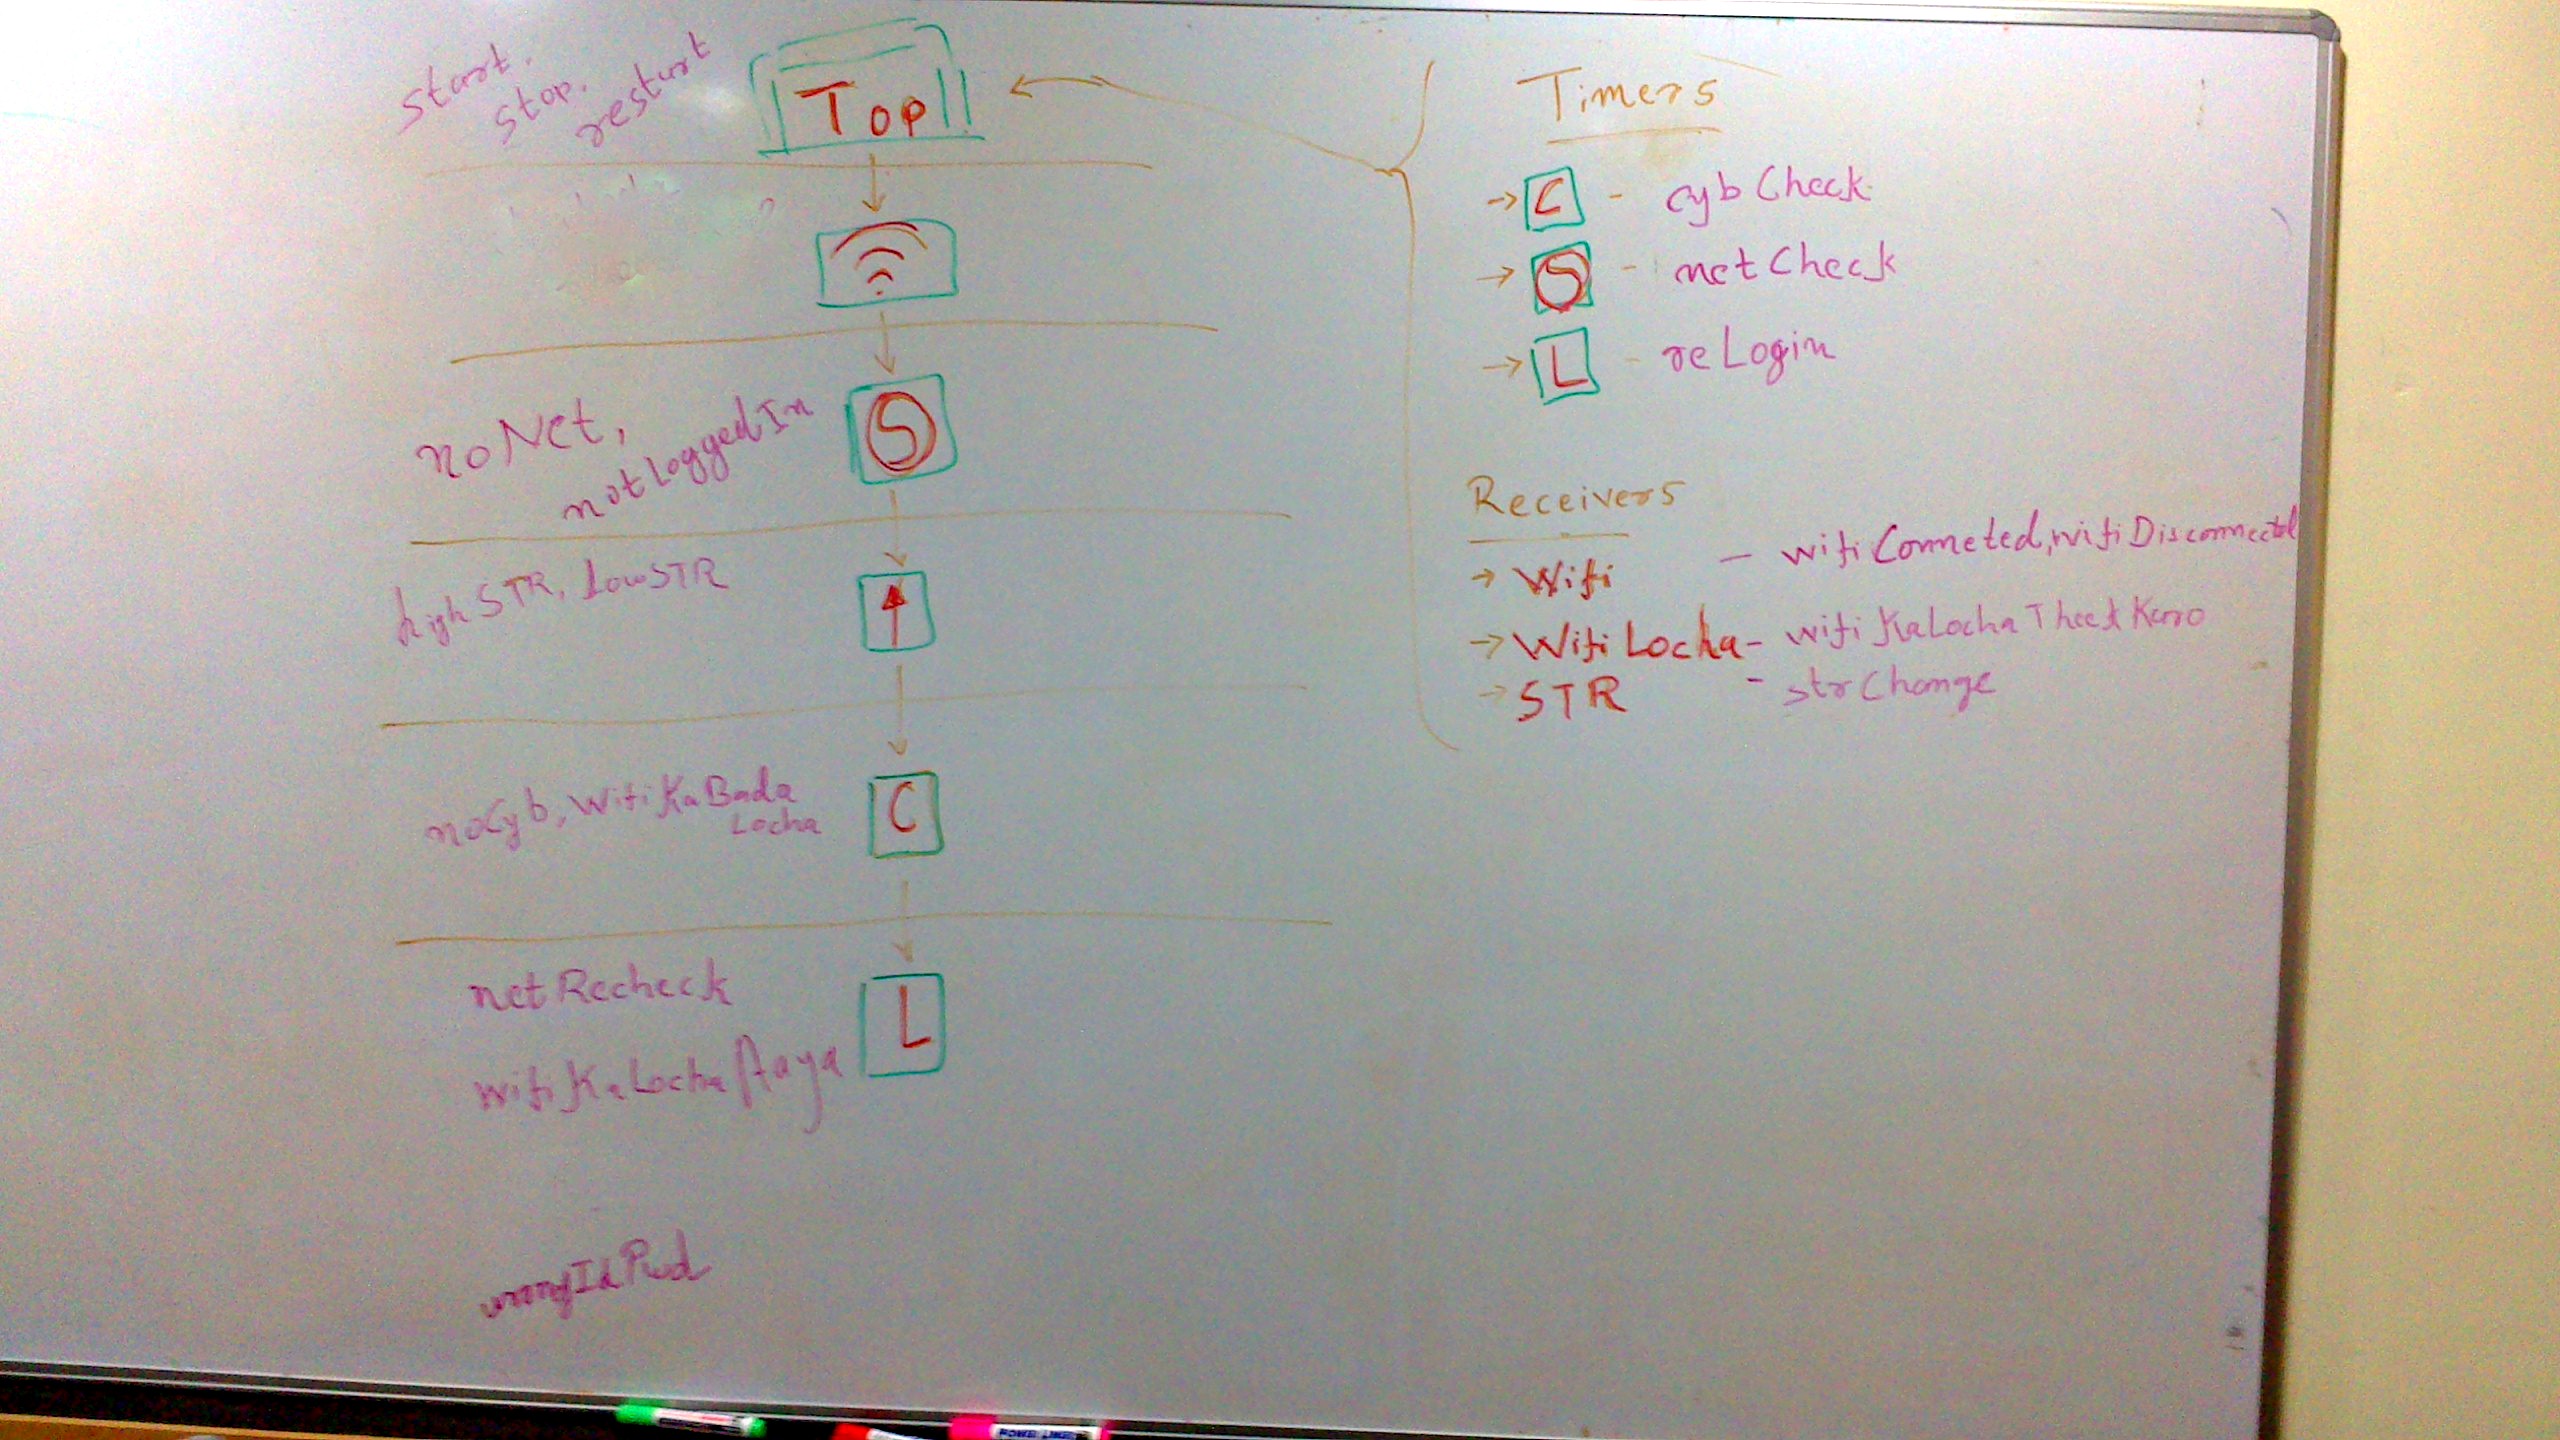 start,
stop,
restart
Top
noNet,
notLoggedIn
S
highSTR, LowSTR
noCyb, WifiKaBada
Locha
C
netRecheck
wifiKaLochaAaya
L
wrongIdPwd
Timers
→ C - cybCheck
→ S - netCheck
→ L - reLogin
Receivers
→ Wifi - wifiConneted, wifiDisconnected
→ WifiLocha - wifiKaLochaTheekKaro
→ STR - strChange